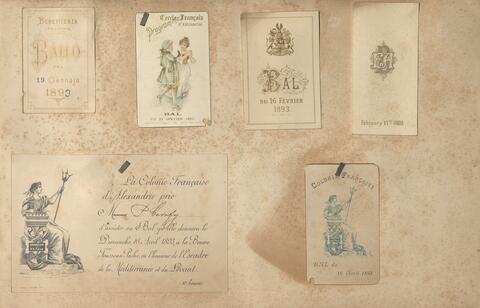 BENEFICENZA
BALLO
DEL
19 Gennajo
1893
Cercle Français
d'Alexandrie
Programme
BAL
BAL
DU 16 FÉVRIER
1893
La Colonie Française
d'Alexandrie prie
d'assister au Bal qu'elle donnera le
Dimanche, 16 Avril 1893, à la Bourse
Toussoun Pacha, en l'honneur de l'Escadre
de la Méditerranée et du Levant.
COLONIE FRANÇAISE
BAL du
16 Avril 1893